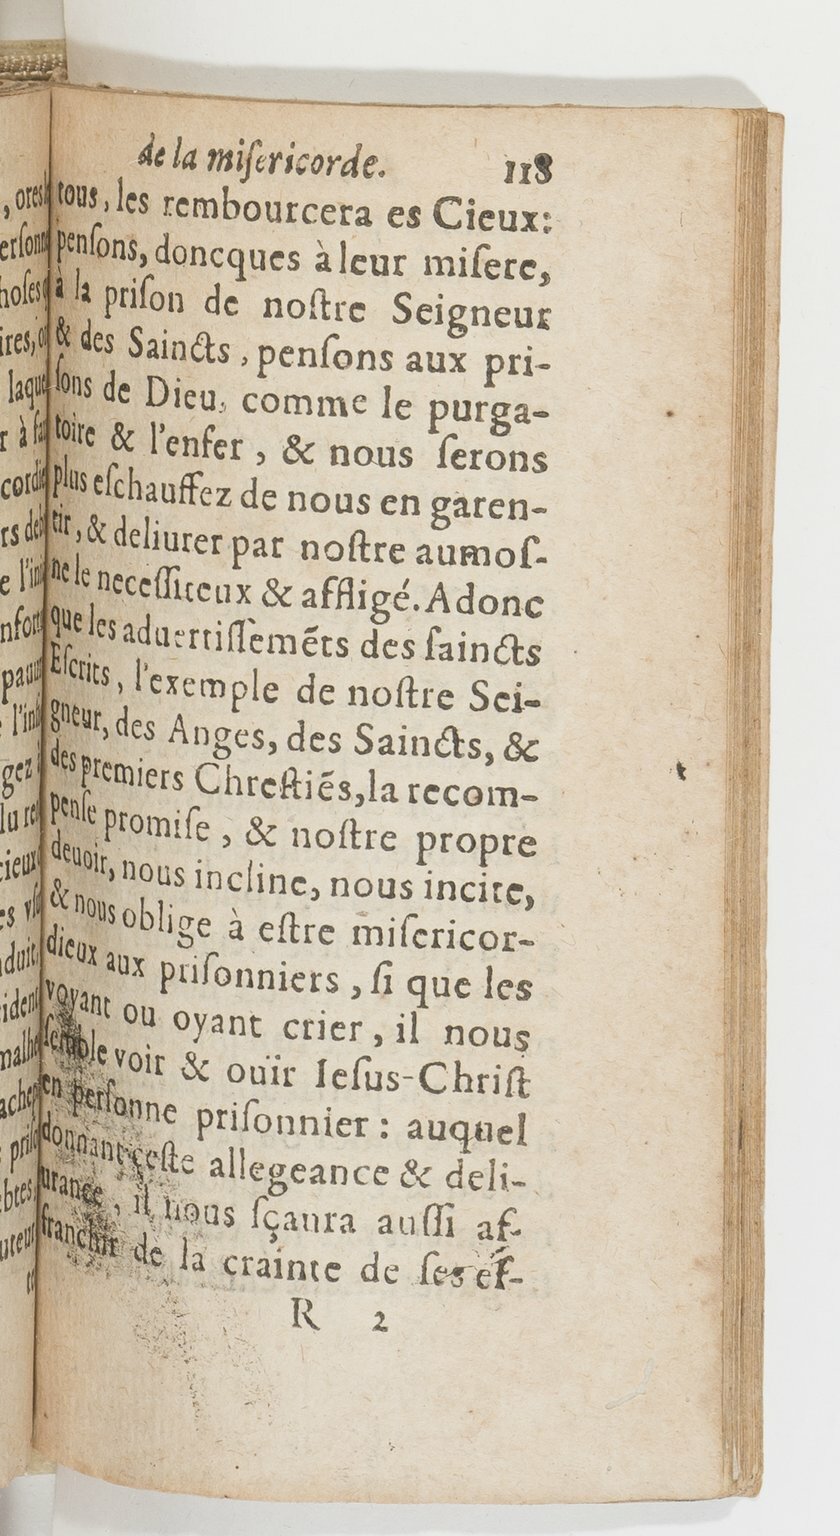 de la miſericorde. 118
tous, les rembourcera es Cieux:
penſons, doncques à leur miſere,
à la priſon de noſtre Seigneur
& des Saincts, penſons aux pri-
ſons de Dieu, comme le purga-
toire & l'enfer, & nous ſerons
plus eſchauffez de nous en garen-
tir, & deliurer par noſtre aumoſ-
ne le neceſſiteux & affligé. Adonc
que les aduertiſſemẽts des ſaincts
Eſcrits, l'exemple de noſtre Sei-
gneur, des Anges, des Saincts, &
des premiers Chreſtiẽs, la recom-
penſe promiſe, & noſtre propre
deuoir, nous incline, nous incite,
& nous oblige à eſtre miſericor-
dieux aux priſonniers, ſi que les
voyant ou oyant crier, il nous
ſemble voir & ouïr Ieſus-Chriſt
en perſonne priſonnier: auquel
donnant ceſte allegeance & deli-
urance, il nous ſçaura auſſi af-
franchir de la crainte de ſes eſ-
R 2